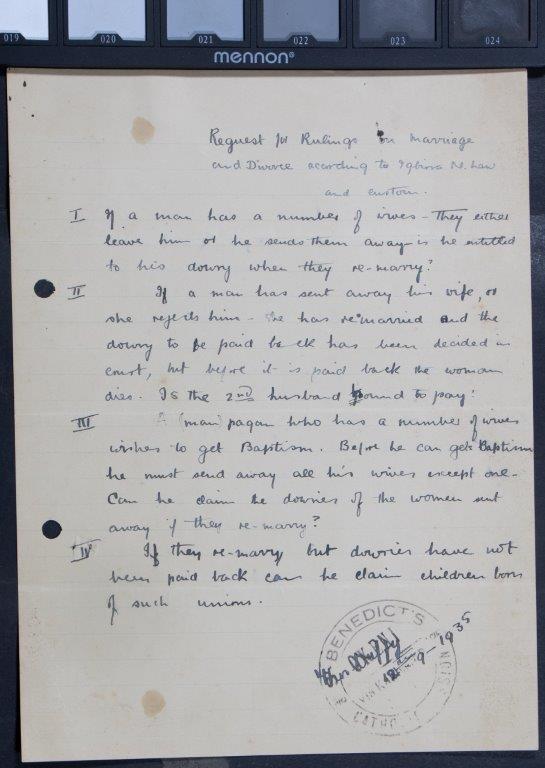 019 020 021 022 023 024
mennon®
Request for Rulings on Marriage
and Divorce according to Igbirra N. Law
and custom.
I If a man has a number of wives - They either
leave him or he sends them away - is he entitled
to his dowry when they re-marry?
II If a man has sent away his wife, or
she rejects him - she has re-married and the
dowry to be paid back has been decided in
court, but before it is paid back the woman
dies. Is the 2nd husband bound to pay?
III A (man) pagan who has a number of wives
wishes to get Baptism. Before he can get Baptism
he must send away all his wives except one.
Can he claim the dowries of the women sent
away if they re-marry?
IV If they re-marry but dowries have not
been paid back can he claim children born
of such unions.
BENEDICT'S
CATHOLIC
MISSION
9-1935